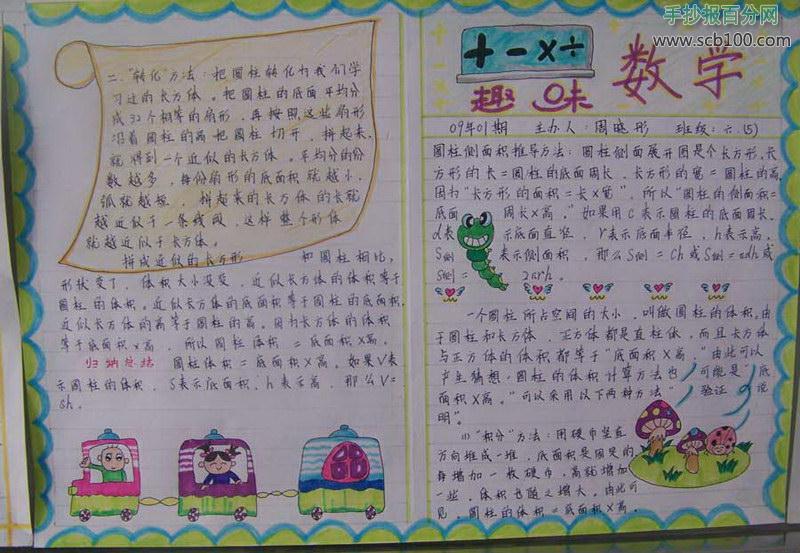 手抄报百分网
www.scb100.com
+ - × ÷
趣味数学
09年01期 主办人:周晓彤 班级:六.(5)
圆柱侧面积推导方法:圆柱侧面展开图是个长方形,长
方形的长=圆柱的底面周长,长方形的宽=圆柱的高,
因为"长方形的面积=长×宽",所以"圆柱的侧面积=
底面 周长×高。"如果用C表示圆柱的底面周长,
d表 示底面直径,r表示底面半径,h表示高,
S侧 表示侧面积,那么S侧=Ch或S侧=πdh或
S侧= 2πrh。
一个圆柱所占空间的大小,叫做圆柱的体积。由
于圆柱和长方体、正方体都是直柱体,而且长方体
与正方体的体积都等于"底面积×高。"由此可以
产生猜想:圆柱的体积计算方法也 可能是"底
面积×高。"可以采用以下两种方法" 验证 说
明"。
(1)"积分"方法:用硬币竖直
方向堆成一堆,底面积是固定的
每增加一枚硬币,高就增加
一些,体积也随之增大。由此可
见,圆柱的体积=底面积×高。
二."转化"方法:把圆柱转化为我们学
习过的长方体。把圆柱的底面平均分
成32个相等的扇形,再按照这些扇形
沿着圆柱的高把圆柱切开,拼起来,
就得到一个近似的长方体。平均分的份
数越多,每份扇形的底面积就越小,
弧就越短,拼起来的长方体的长就
越近似于一条线段,这样整个形体
就越近似于长方体。
拼成近似的长方形 如圆柱相比,
形状变了,体积大小没变,近似长方体的体积等于
圆柱的体积。近似长方体的底面积等于圆柱的底面积,
近似长方体的高等于圆柱的高。因为长方体的体积
等于底面积×高,所以圆柱体积 =底面积×高。
归纳总结 圆柱体积=底面积×高。如果V表
示圆柱的体积,S表示底面积,h表示高,那么V=
Sh。